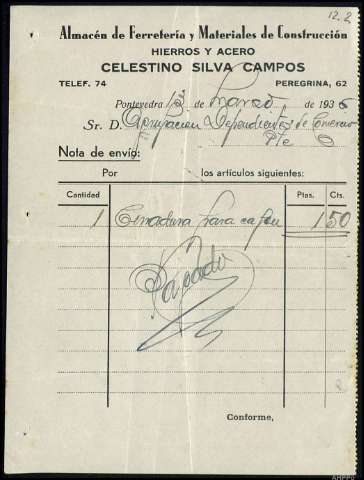 12.2
Almacén de Ferretería y Materiales de Construcción
HIERROS Y ACERO
CELESTINO SILVA CAMPOS
TELEF. 74 PEREGRINA, 62
Pontevedra 13 de Marzo de 1936
Sr. D. Agrupacion Dependientes de Comercio
Pte
Nota de envío:
Por los artículos siguientes:
Cantidad Ptas. Cts.
1 Cerradura para cajon 1 50
Pagado
Conforme,
AHPPO